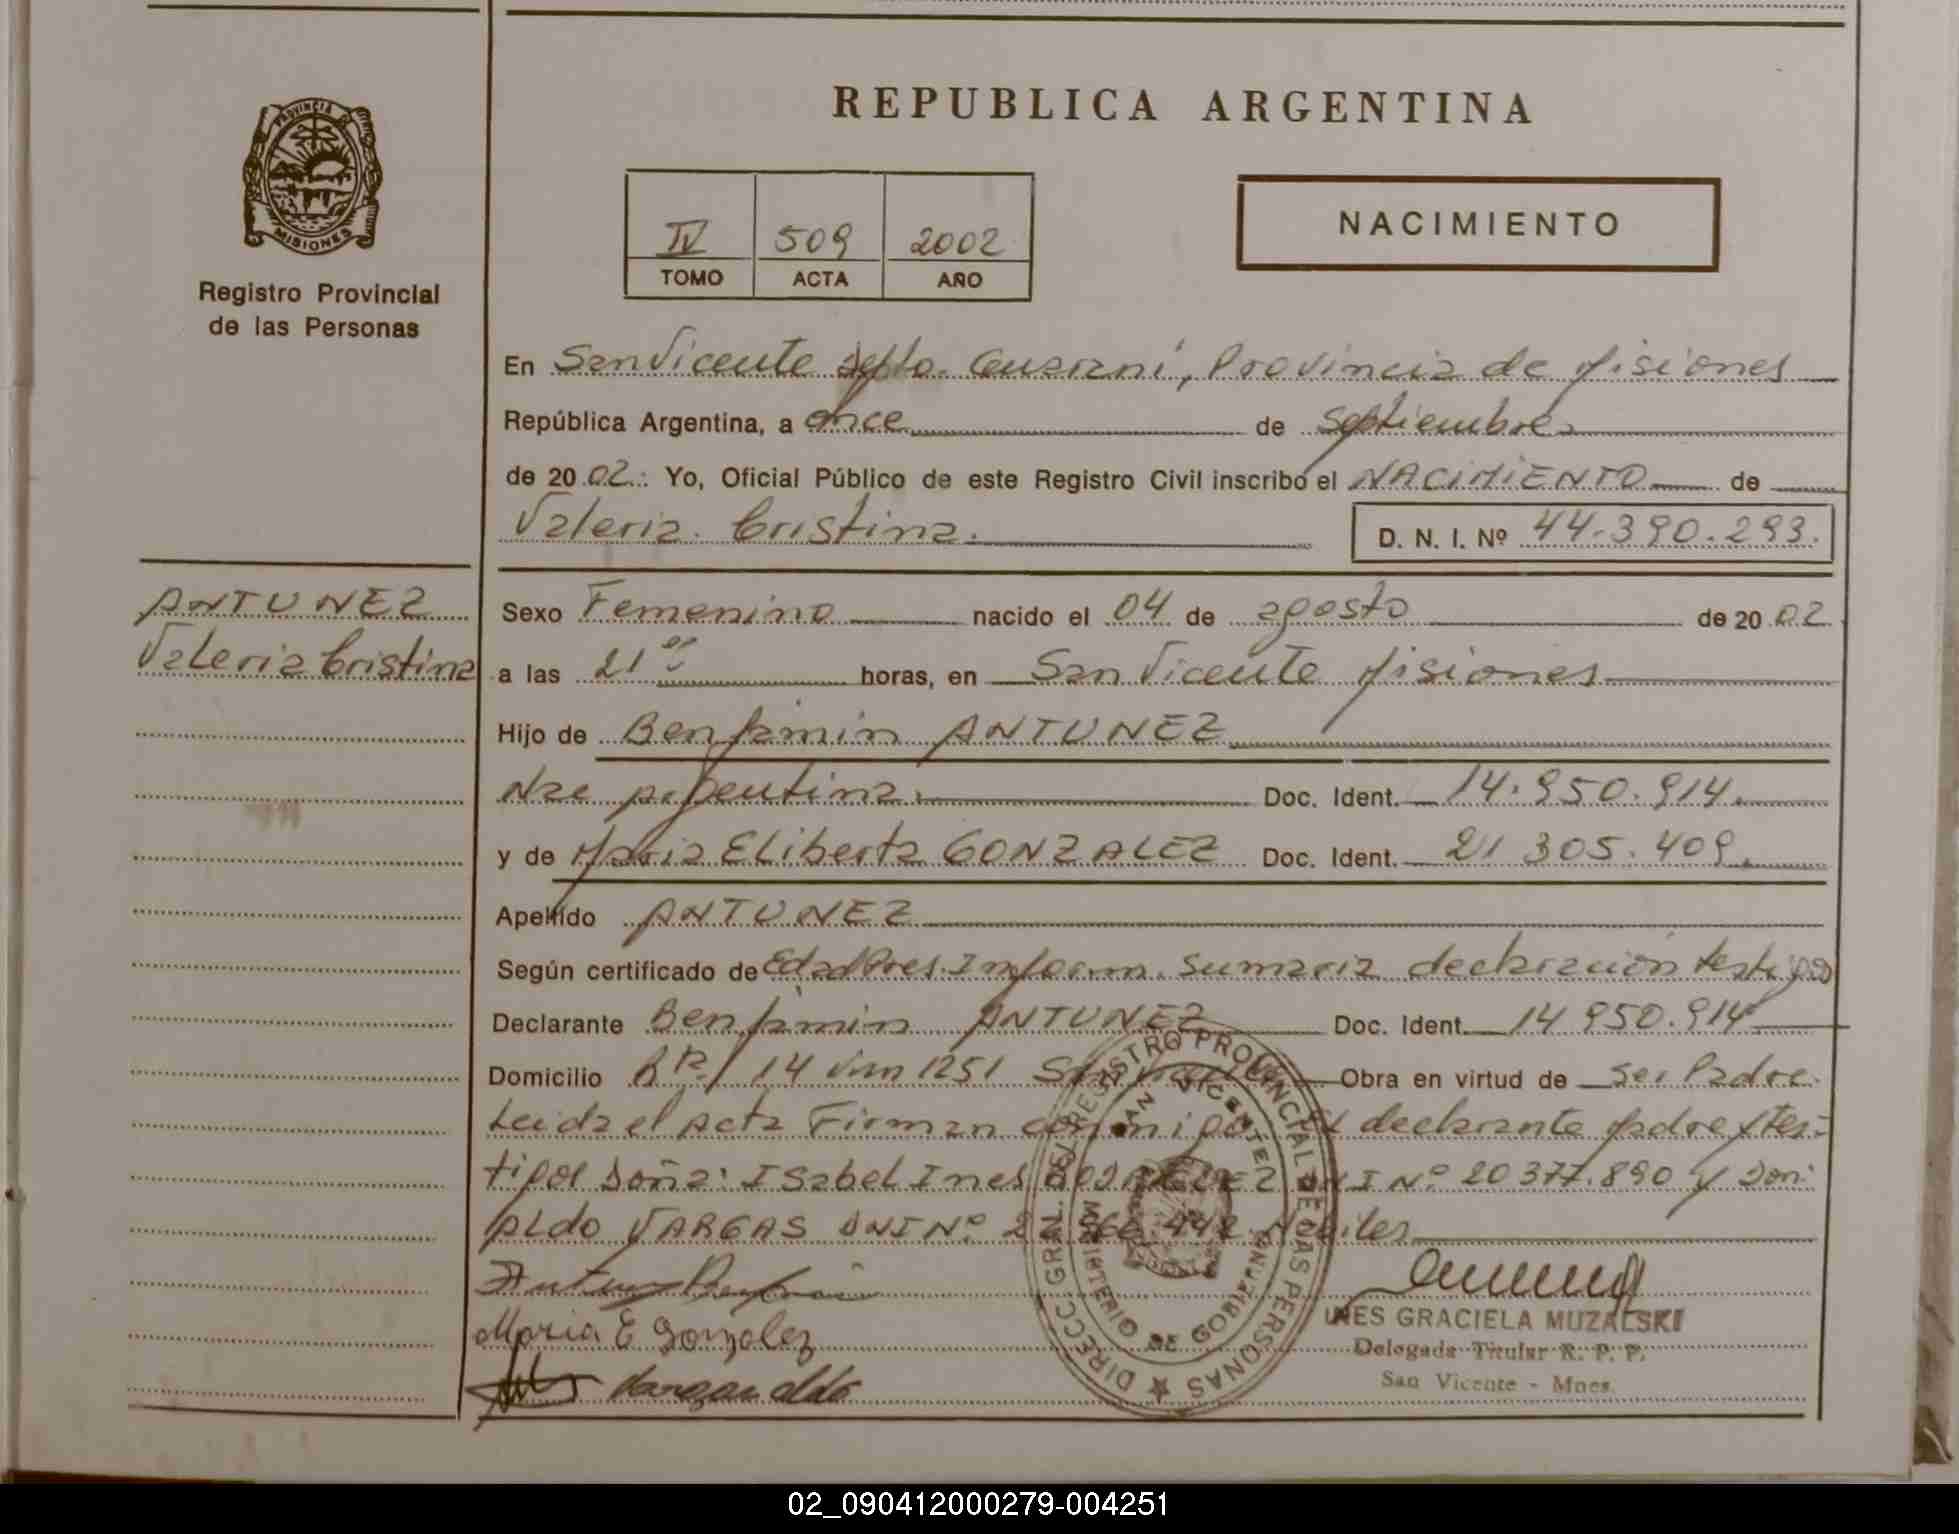 REPUBLICA ARGENTINA
PROVINCIA DE
MISIONES
Registro Provincial
de las Personas
IV 509 2002
TOMO ACTA AÑO
NACIMIENTO
En San Vicente Depto. Guaraní, Provincia de Misiones
República Argentina, a once de Septiembre
de 2002: Yo, Oficial Público de este Registro Civil inscribo el NACIMIENTO de
Valeria Cristina. D. N. I. Nº 44.390.293.
ANTUNEZ
Valeria Cristina
Sexo Femenino nacido el 04 de agosto de 2002
a las 21 horas, en San Vicente Misiones
Hijo de Benjamin ANTUNEZ
Nac argentina. Doc. Ident. 14.950.914.
y de Maria Eliberta GONZALEZ Doc. Ident. 21 305.409.
Apellido ANTUNEZ
Según certificado de Edad Pres. Inform. Sumaria declaración testigos
Declarante Benjamin ANTUNEZ Doc. Ident. 14 950.914
Domicilio 14 Km 1251 San Vicente Obra en virtud de ser Padre.
Leida el Acta Firman conmigo El declarante padre y tes-
tigos Doña: Isabel Ines DNI Nº 20 377.890 y Don:
Aldo VARGAS DNI Nº Habiles
Maria E Gonzalez
Vargas aldo
DIRECC. GRAL. DEL REGISTRO PROVINCIAL DE LAS PERSONAS
MINISTERIO DE GOBIERNO
SAN VICENTE
INES GRACIELA MUZALSKI
Delegada Titular R. P. P.
San Vicente - Mnes.
02_090412000279-004251